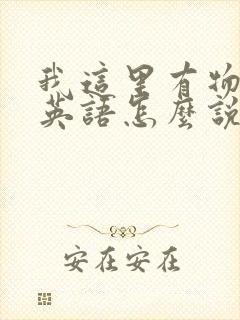 我這里有物
英語怎麼說
安在安在